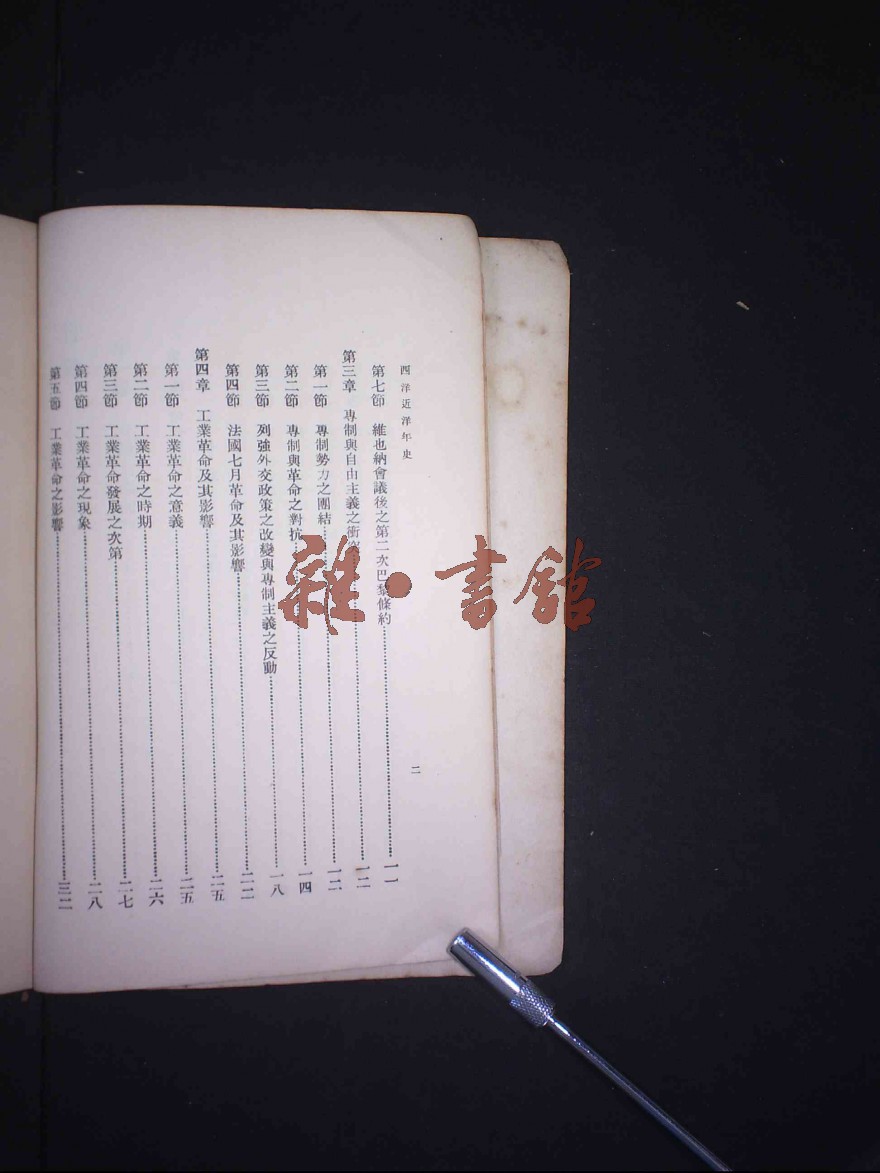 西洋近洋年史
二
第七節　維也納會議後之第二次巴黎條約……一一
第三章　專制與自由主義之衝突……一二
第一節　專制勢力之團結……一二
第二節　專制與革命之對抗……一四
第三節　列強外交政策之改變與專制主義之反動……一八
第四節　法國七月革命及其影響……二二
第四章　工業革命及其影響……二五
第一節　工業革命之意義……二五
第二節　工業革命之時期……二六
第三節　工業革命發展之次第……二七
第四節　工業革命之現象……二八
第五節　工業革命之影響……三二
雜·書館